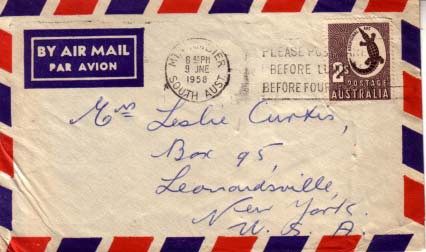 BY AIR MAIL
PAR AVION
8 PM
9 JNE
1958
SOUTH AUST
PLEASE POST
BEFORE
BEFORE FOUR
2s
POSTAGE
AUSTRALIA
Mrs Leslie Curtis,
Box 95,
Leonardsville,
New York.
U. S. A.